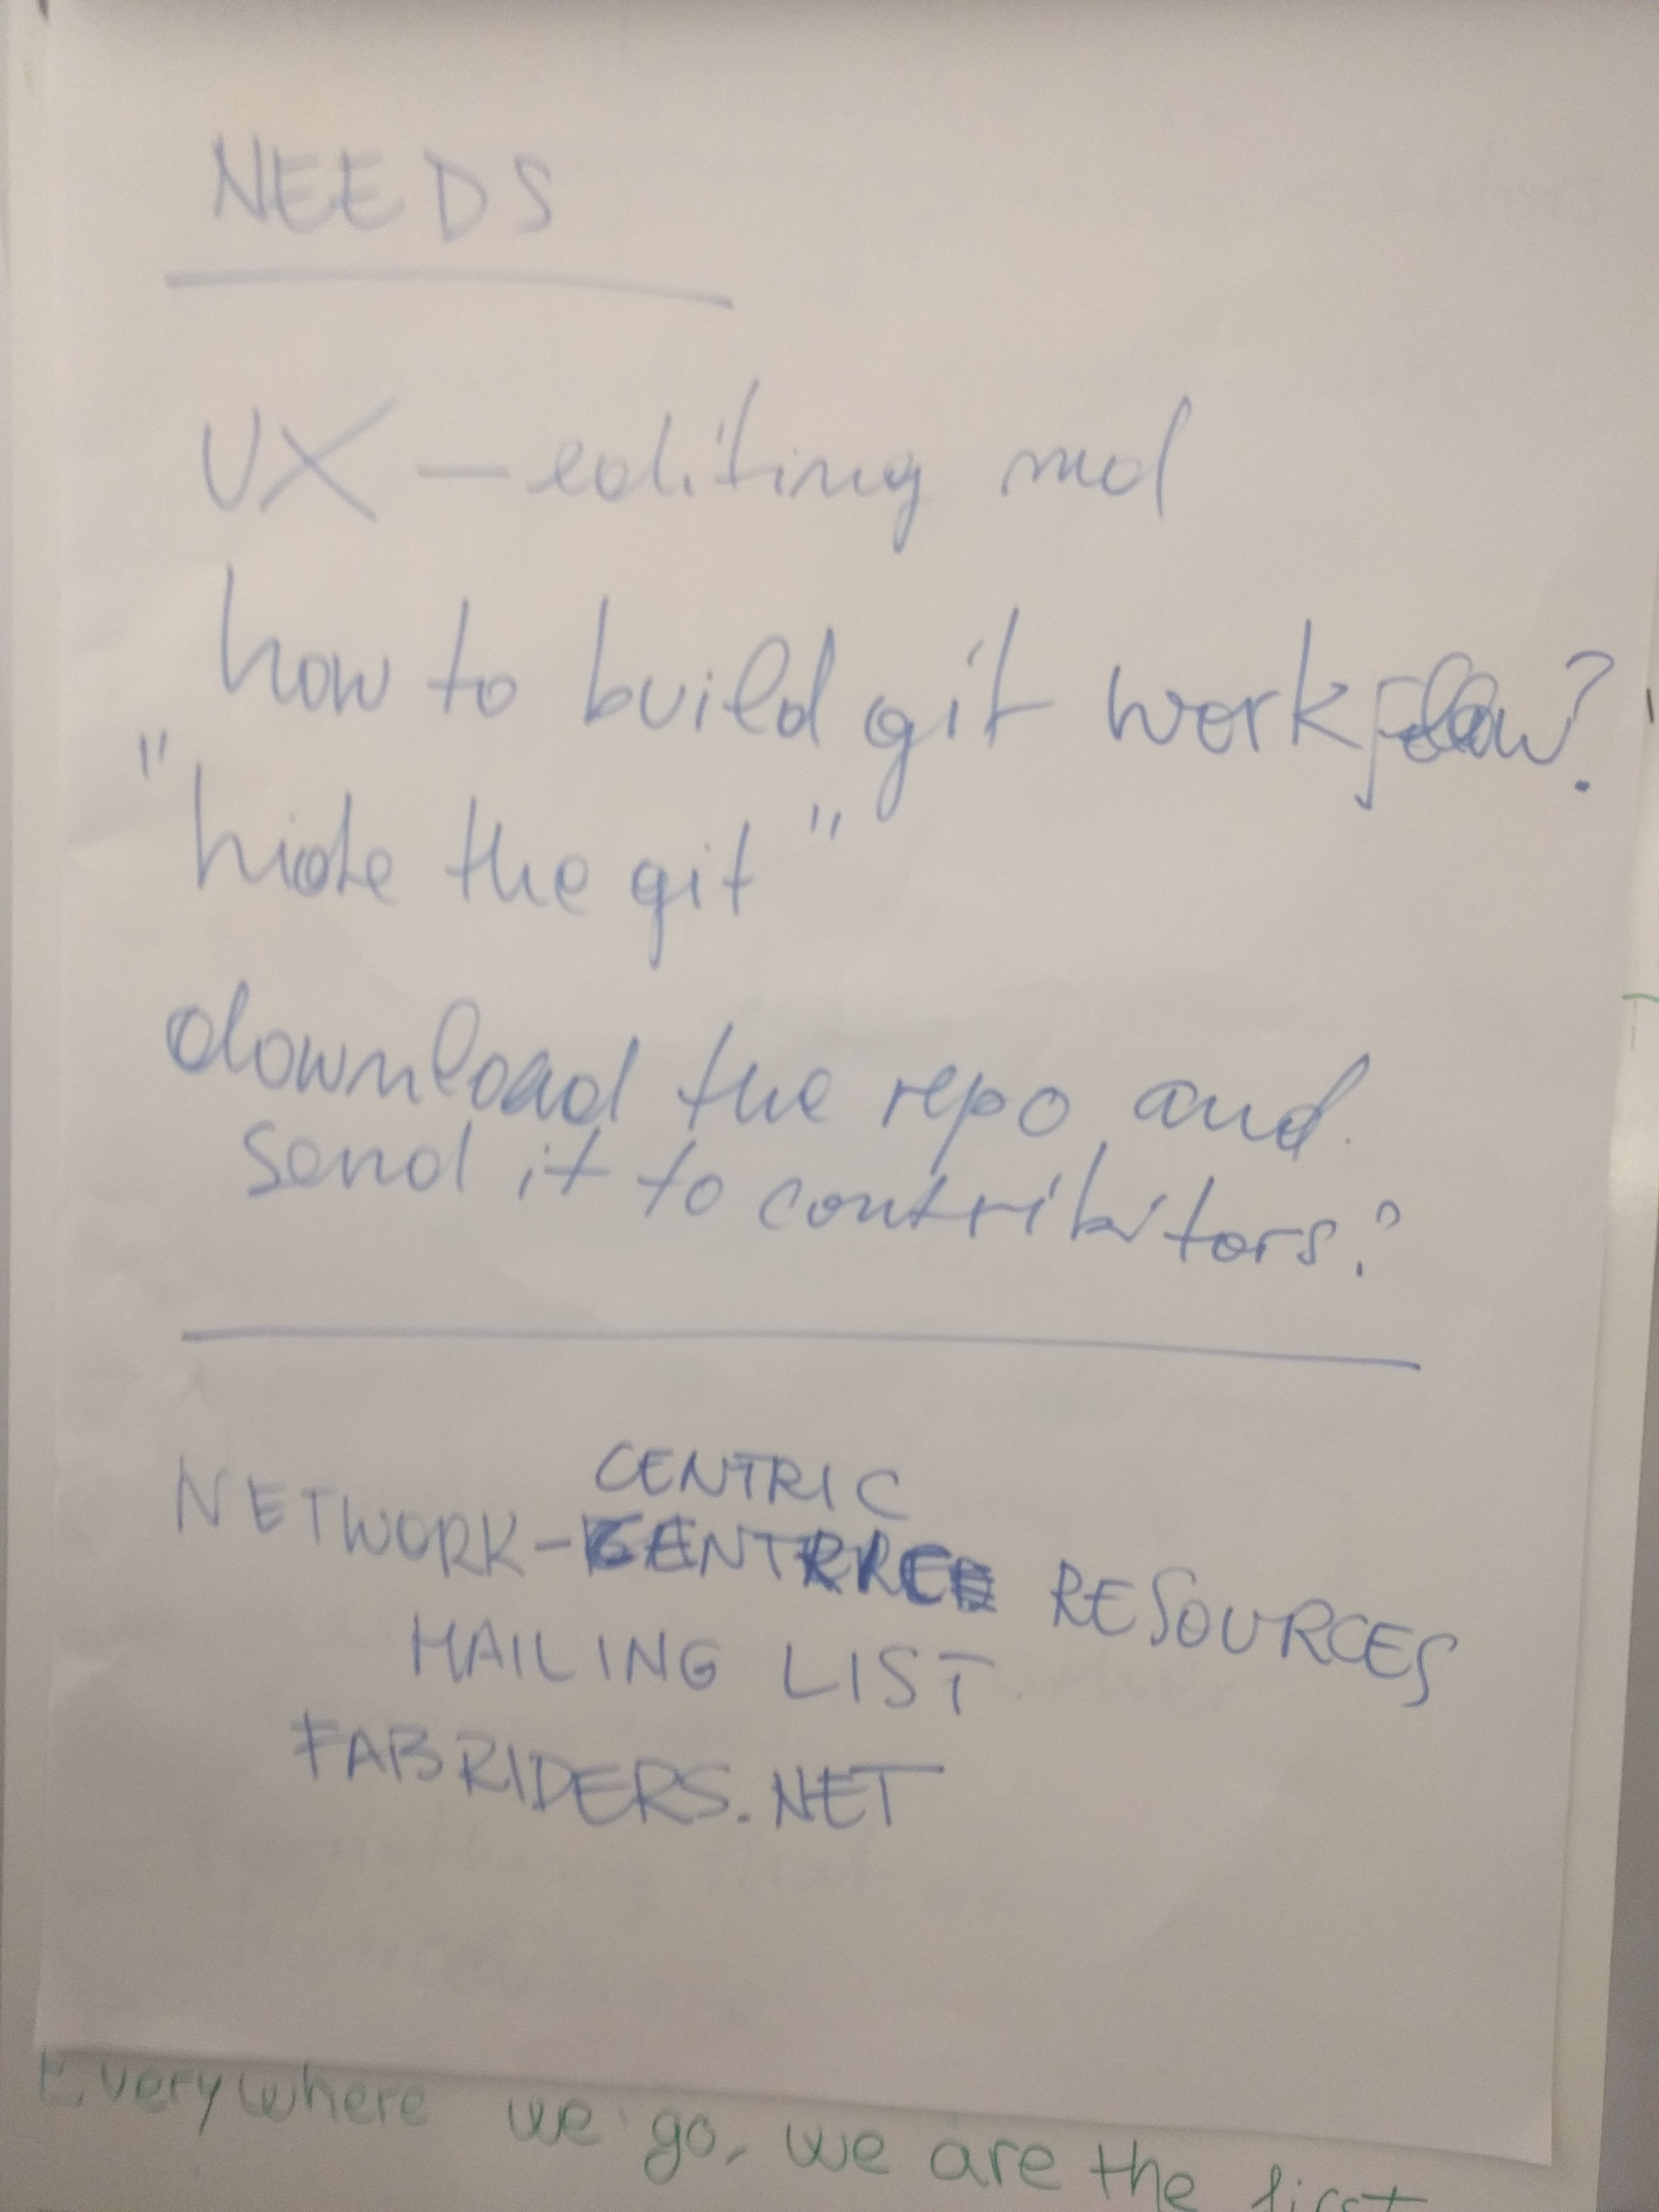 NEEDS
UX - editing md
how to build git workflow?
"hide the git"
download the repo and
send it to contributors?
CENTRIC
NETWORK- RESOURCES
MAILING LIST
FABRIDERS.NET
Everywhere we go, we are the first